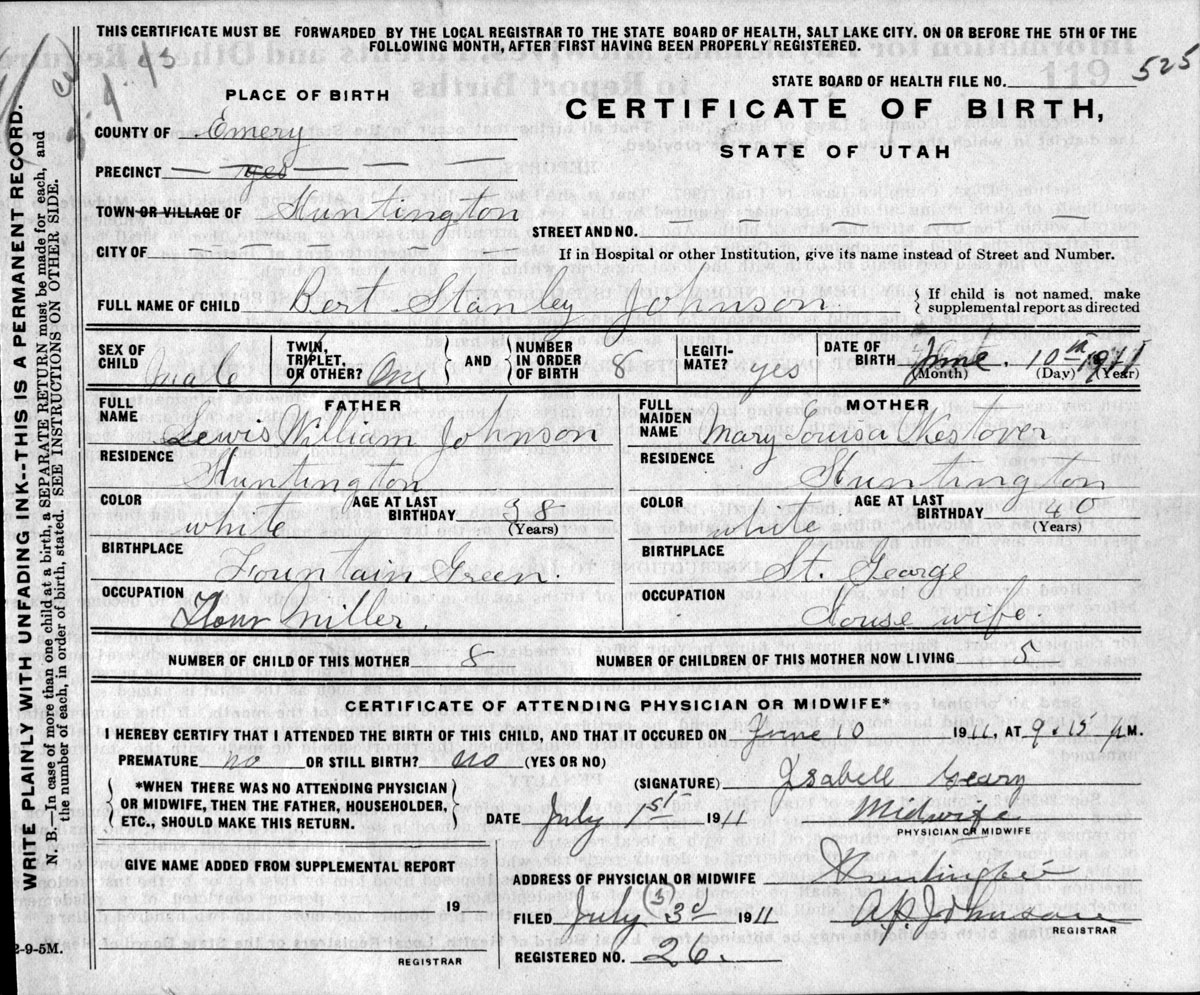 THIS CERTIFICATE MUST BE FORWARDED BY THE LOCAL REGISTRAR TO THE STATE BOARD OF HEALTH, SALT LAKE CITY. ON OR BEFORE THE 5TH OF THE
FOLLOWING MONTH, AFTER FIRST HAVING BEEN PROPERLY REGISTERED.
STATE BOARD OF HEALTH FILE NO. 525
119
PLACE OF BIRTH
CERTIFICATE OF BIRTH,
STATE OF UTAH
COUNTY OF Emery
PRECINCT yes
TOWN OR VILLAGE OF Huntington
STREET AND NO.
CITY OF
If in Hospital or other Institution, give its name instead of Street and Number.
FULL NAME OF CHILD Bert Stanley Johnson
If child is not named, make
supplemental report as directed
SEX OF CHILD male
TWIN, TRIPLET, OR OTHER? One
AND NUMBER IN ORDER OF BIRTH 8
LEGITI-MATE? yes
DATE OF BIRTH June 10th 1911
(Month) (Day) (Year)
FATHER
FULL NAME Lewis William Johnson
RESIDENCE Huntington
COLOR white
AGE AT LAST BIRTHDAY 38 (Years)
BIRTHPLACE Fountain Green.
OCCUPATION Flour Miller.
MOTHER
FULL MAIDEN NAME Mary Louisa Westover
RESIDENCE Huntington
COLOR white
AGE AT LAST BIRTHDAY 40 (Years)
BIRTHPLACE St. George
OCCUPATION House wife.
NUMBER OF CHILD OF THIS MOTHER 8
NUMBER OF CHILDREN OF THIS MOTHER NOW LIVING 5
CERTIFICATE OF ATTENDING PHYSICIAN OR MIDWIFE*
I HEREBY CERTIFY THAT I ATTENDED THE BIRTH OF THIS CHILD, AND THAT IT OCCURED ON June 10 1911, AT 9.15 P M.
PREMATURE no OR STILL BIRTH? no (YES OR NO)
*WHEN THERE WAS NO ATTENDING PHYSICIAN
OR MIDWIFE, THEN THE FATHER, HOUSEHOLDER,
ETC., SHOULD MAKE THIS RETURN.
(SIGNATURE) Isabell Geary
DATE July 1st 1911 Midwife
PHYSICIAN OR MIDWIFE
GIVE NAME ADDED FROM SUPPLEMENTAL REPORT
19
REGISTRAR
ADDRESS OF PHYSICIAN OR MIDWIFE Huntington
FILED July 3d 1911 Johnson
REGISTRAR
REGISTERED NO. 26.
2-9-5M.
WRITE PLAINLY WITH UNFADING INK--THIS IS A PERMANENT RECORD.
N. B.—In case of more than one child at a birth, a SEPARATE RETURN must be made for each, and
the number of each, in order of birth, stated. SEE INSTRUCTIONS ON OTHER SIDE.